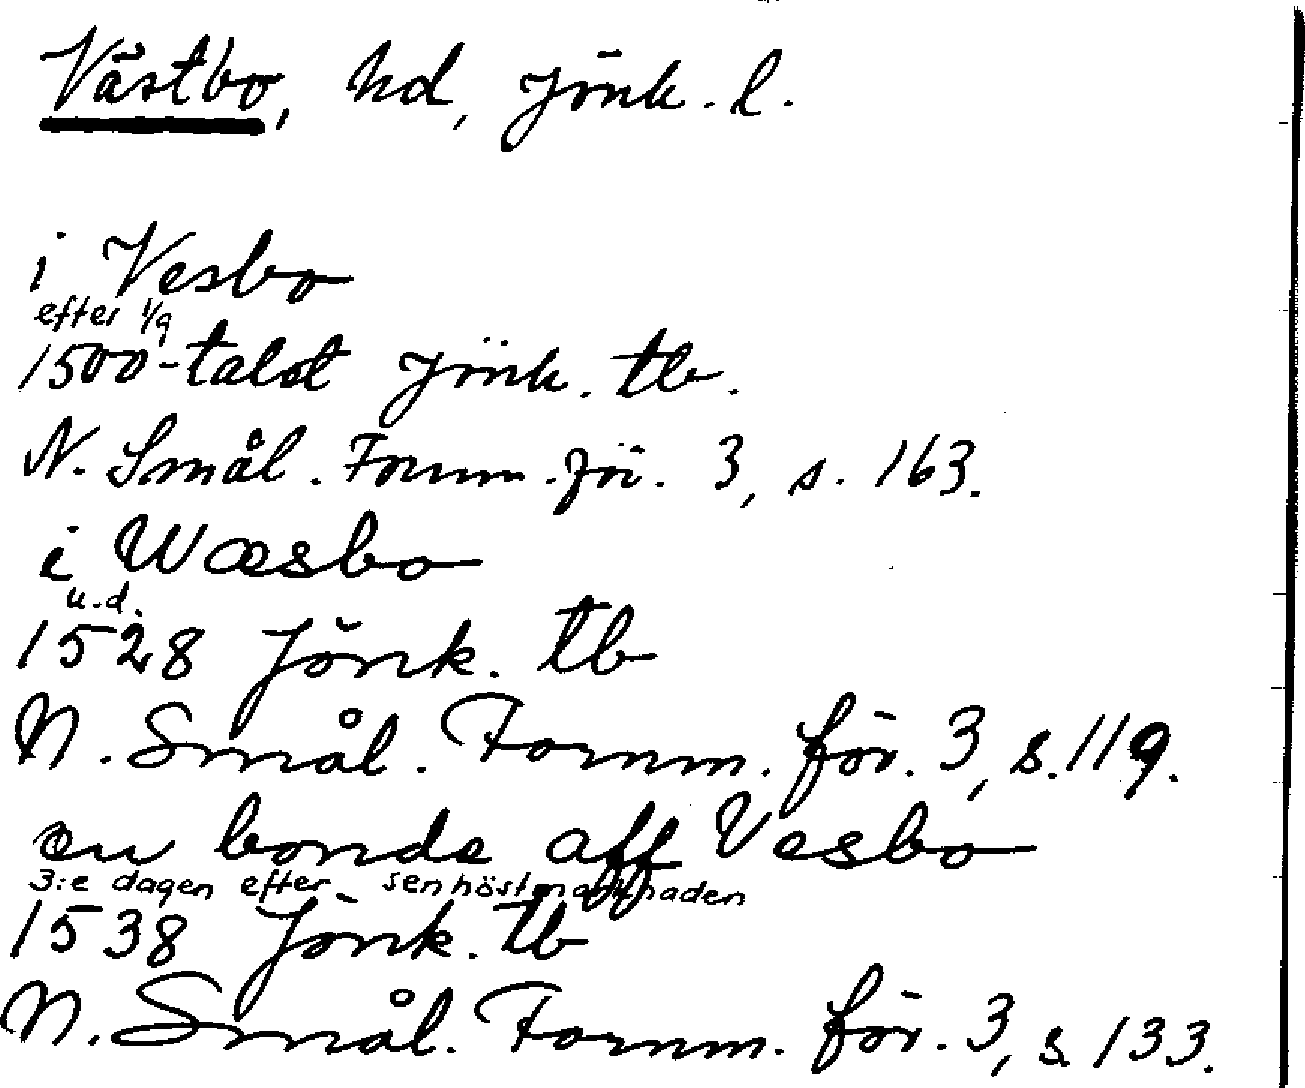 Västbo, hd, Jönk. l.
i Vesbo
efter 1/9
1500-talet Jönk. tb.
N. Smål. Fornm. för. 3, s. 163.
i Wæsbo
u.d.
1528 Jönk. tb
N. Smål. Fornm. för. 3, s. 119.
en bonde aff Vesbo
3:e dagen efter senhöstmarknaden
1538 Jönk. tb
N. Smål. Fornm. för. 3, s 133.